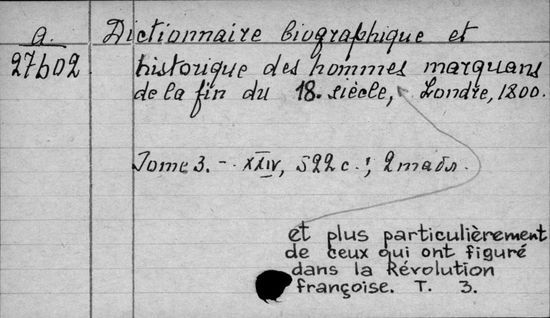 a. Dictionnaire biographique et
27602 historique des hommes marquans
de la fin du 18. siècle, Londre, 1800.
Tome 3. - XXIV, 522 c.; 2 табл.
et plus particulièrement
de ceux qui ont figuré
dans la Révolution
françoise. T. 3.